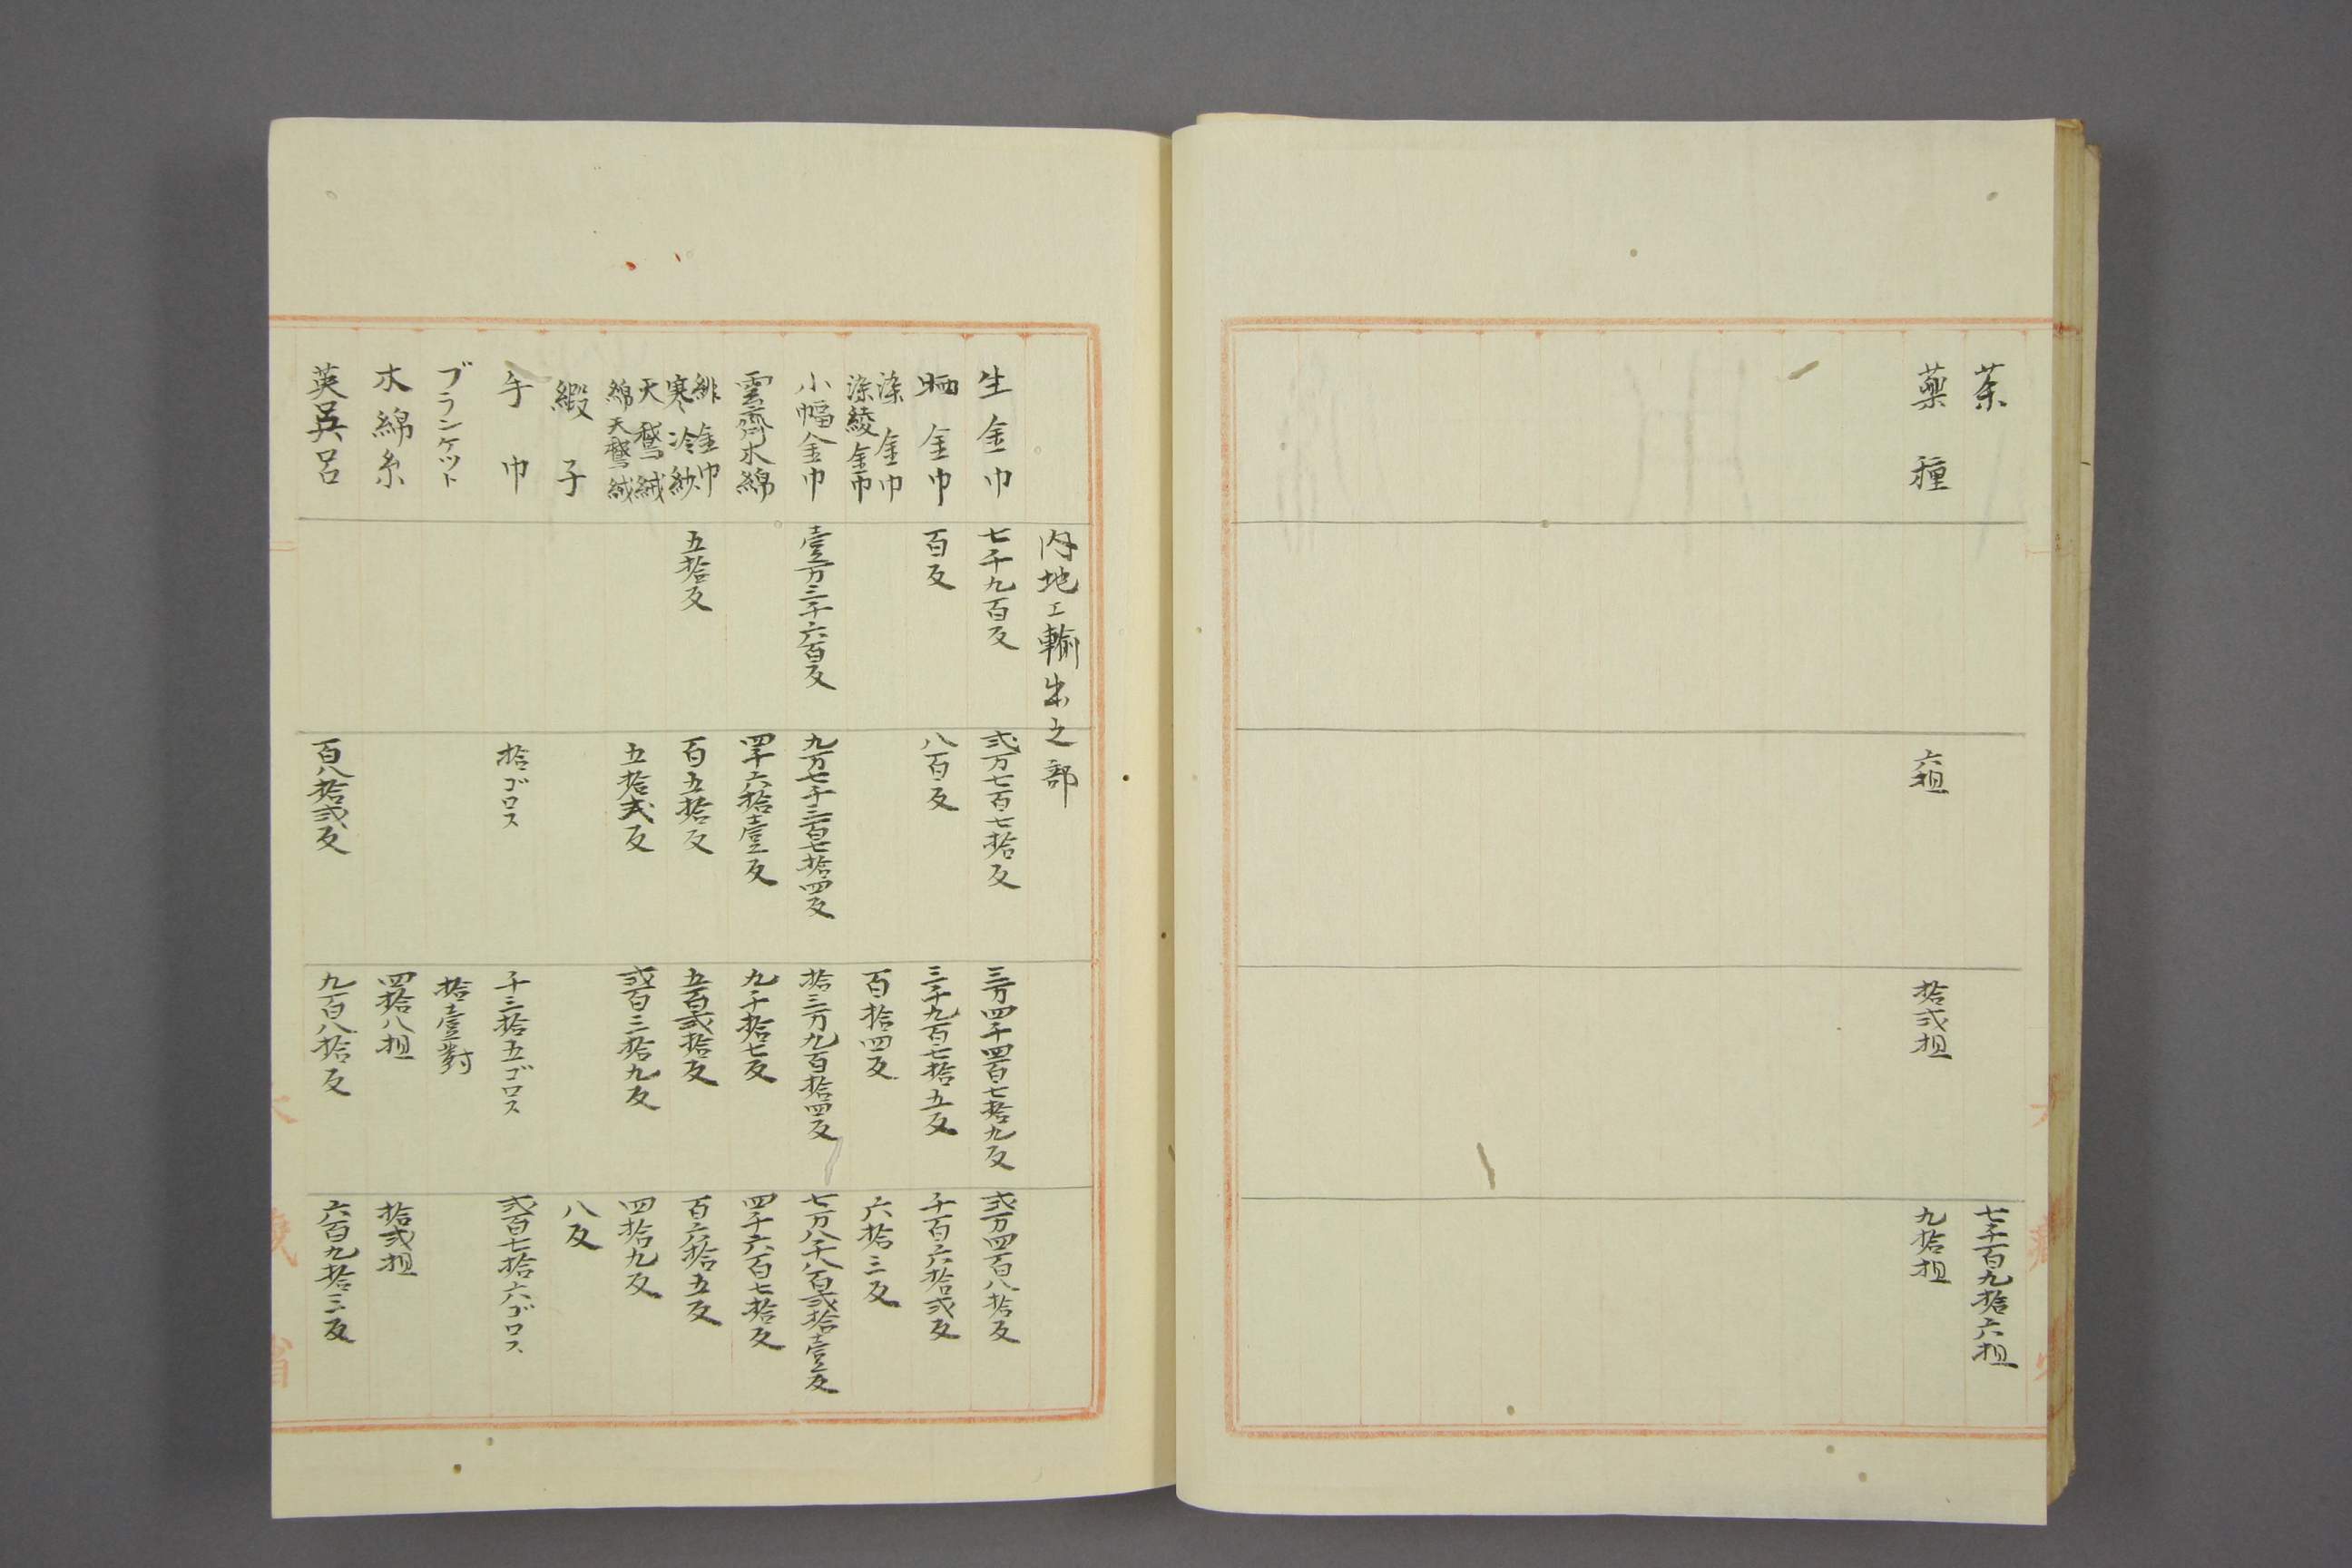 茶 七千百九拾六担
薬種 六担 拾弐担 九拾担
内地エ輸出之部
生金巾 七千九百反 弐万七百七拾反 三万四千四百七拾九反 弐万四百八拾反
晒金巾 百反 八百反 三千九百七拾五反 千百六拾弐反
染金巾
染綾金巾 百拾四反 六拾三反
小幅金巾 壹万三千六百反 九万七千三百七拾四反 拾三万九百拾四反 七万八千八百弐拾壹反
雲齊木綿 四千六拾壹反 九千拾七反 四千六百七拾反
緋金巾
寒冷紗 五拾反 百五拾反 五百弐拾反 百六拾五反
天鵞絨
綿天鵞絨 五拾弐反 弐百三拾九反 四拾九反
緞子 八反
手巾 拾ゴロス 千三拾五ゴロス 弐百七拾六ゴロス
ブランケット 拾壹對
木綿糸 四拾八担 拾弐担
英呉呂 百八拾弐反 九百八拾反 六百九拾三反